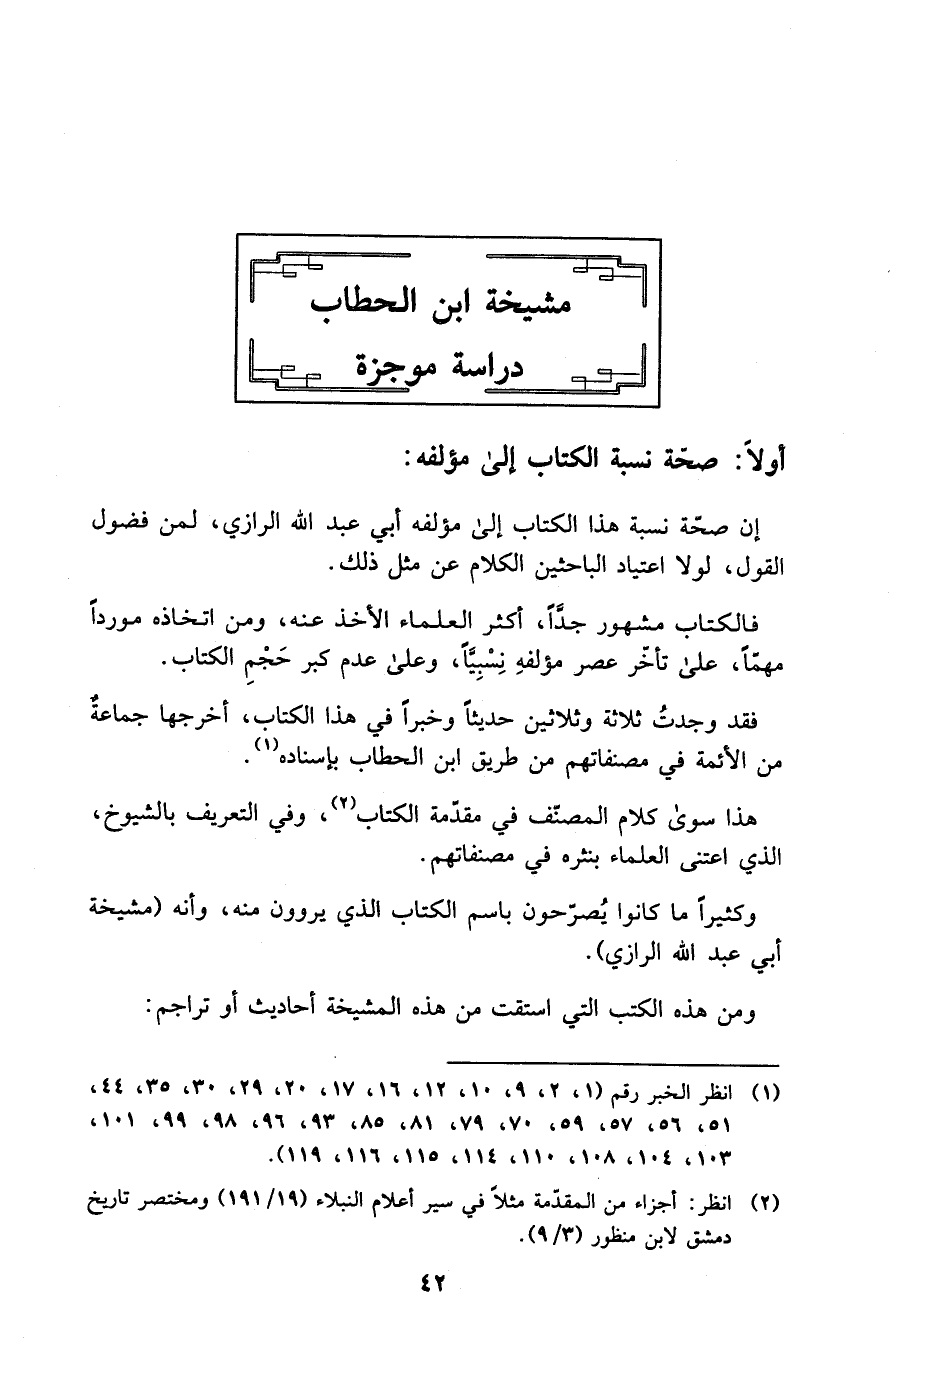 مشيخة ابن الحطاب
دراسة موجزة
أولاً: صحّة نسبة الكتاب إلىٰ مؤلفه:
إن صحّة نسبة هذا الكتاب إلىٰ مؤلفه أبي عبد الله الرازي، لمن فضول
القول، لولا اعتياد الباحثين الكلام عن مثل ذلك.
فالكتاب مشهور جدَّاً، أكثر العلماء الأخذ عنه، ومن اتخاذه مورداً
مهمّاً، علىٰ تأخّر عصر مؤلفهِ نِسْبِيَّاً، وعلىٰ عدم كبر حَجْمِ الكتاب.
فقد وجدتُ ثلاثة وثلاثين حديثاً وخبراً في هذا الكتاب، أخرجها جماعةٌ
من الأئمة في مصنفاتهم من طريق ابن الحطاب بإسناده(١).
هذا سوىٰ كلام المصنّف في مقدّمة الكتاب(٢)، وفي التعريف بالشيوخ،
الذي اعتنى العلماء بنثره في مصنفاتهم.
وكثيراً ما كانوا يُصرّحون باسم الكتاب الذي يروون منه، وأنه (مشيخة
أبي عبد الله الرازي).
ومن هذه الكتب التي استقت من هذه المشيخة أحاديث أو تراجم:
(١) انظر الخبر رقم (١، ٢، ٩، ١٠، ١٢، ١٦، ١٧، ٢٠، ٢٩، ٣٠، ٣٥، ٤٤،
٥١، ٥٦، ٥٧، ٥٩، ٧٠، ٧٩، ٨١، ٨٥، ٩٣، ٩٦، ٩٨، ٩٩، ١٠١،
١٠٣، ١٠٤، ١٠٨، ١١٠، ١١٤، ١١٥، ١١٦، ١١٩).
(٢) انظر: أجزاء من المقدّمة مثلاً في سير أعلام النبلاء (١٩/ ١٩١) ومختصر تاريخ
دمشق لابن منظور (٣/ ٩).
٤٢